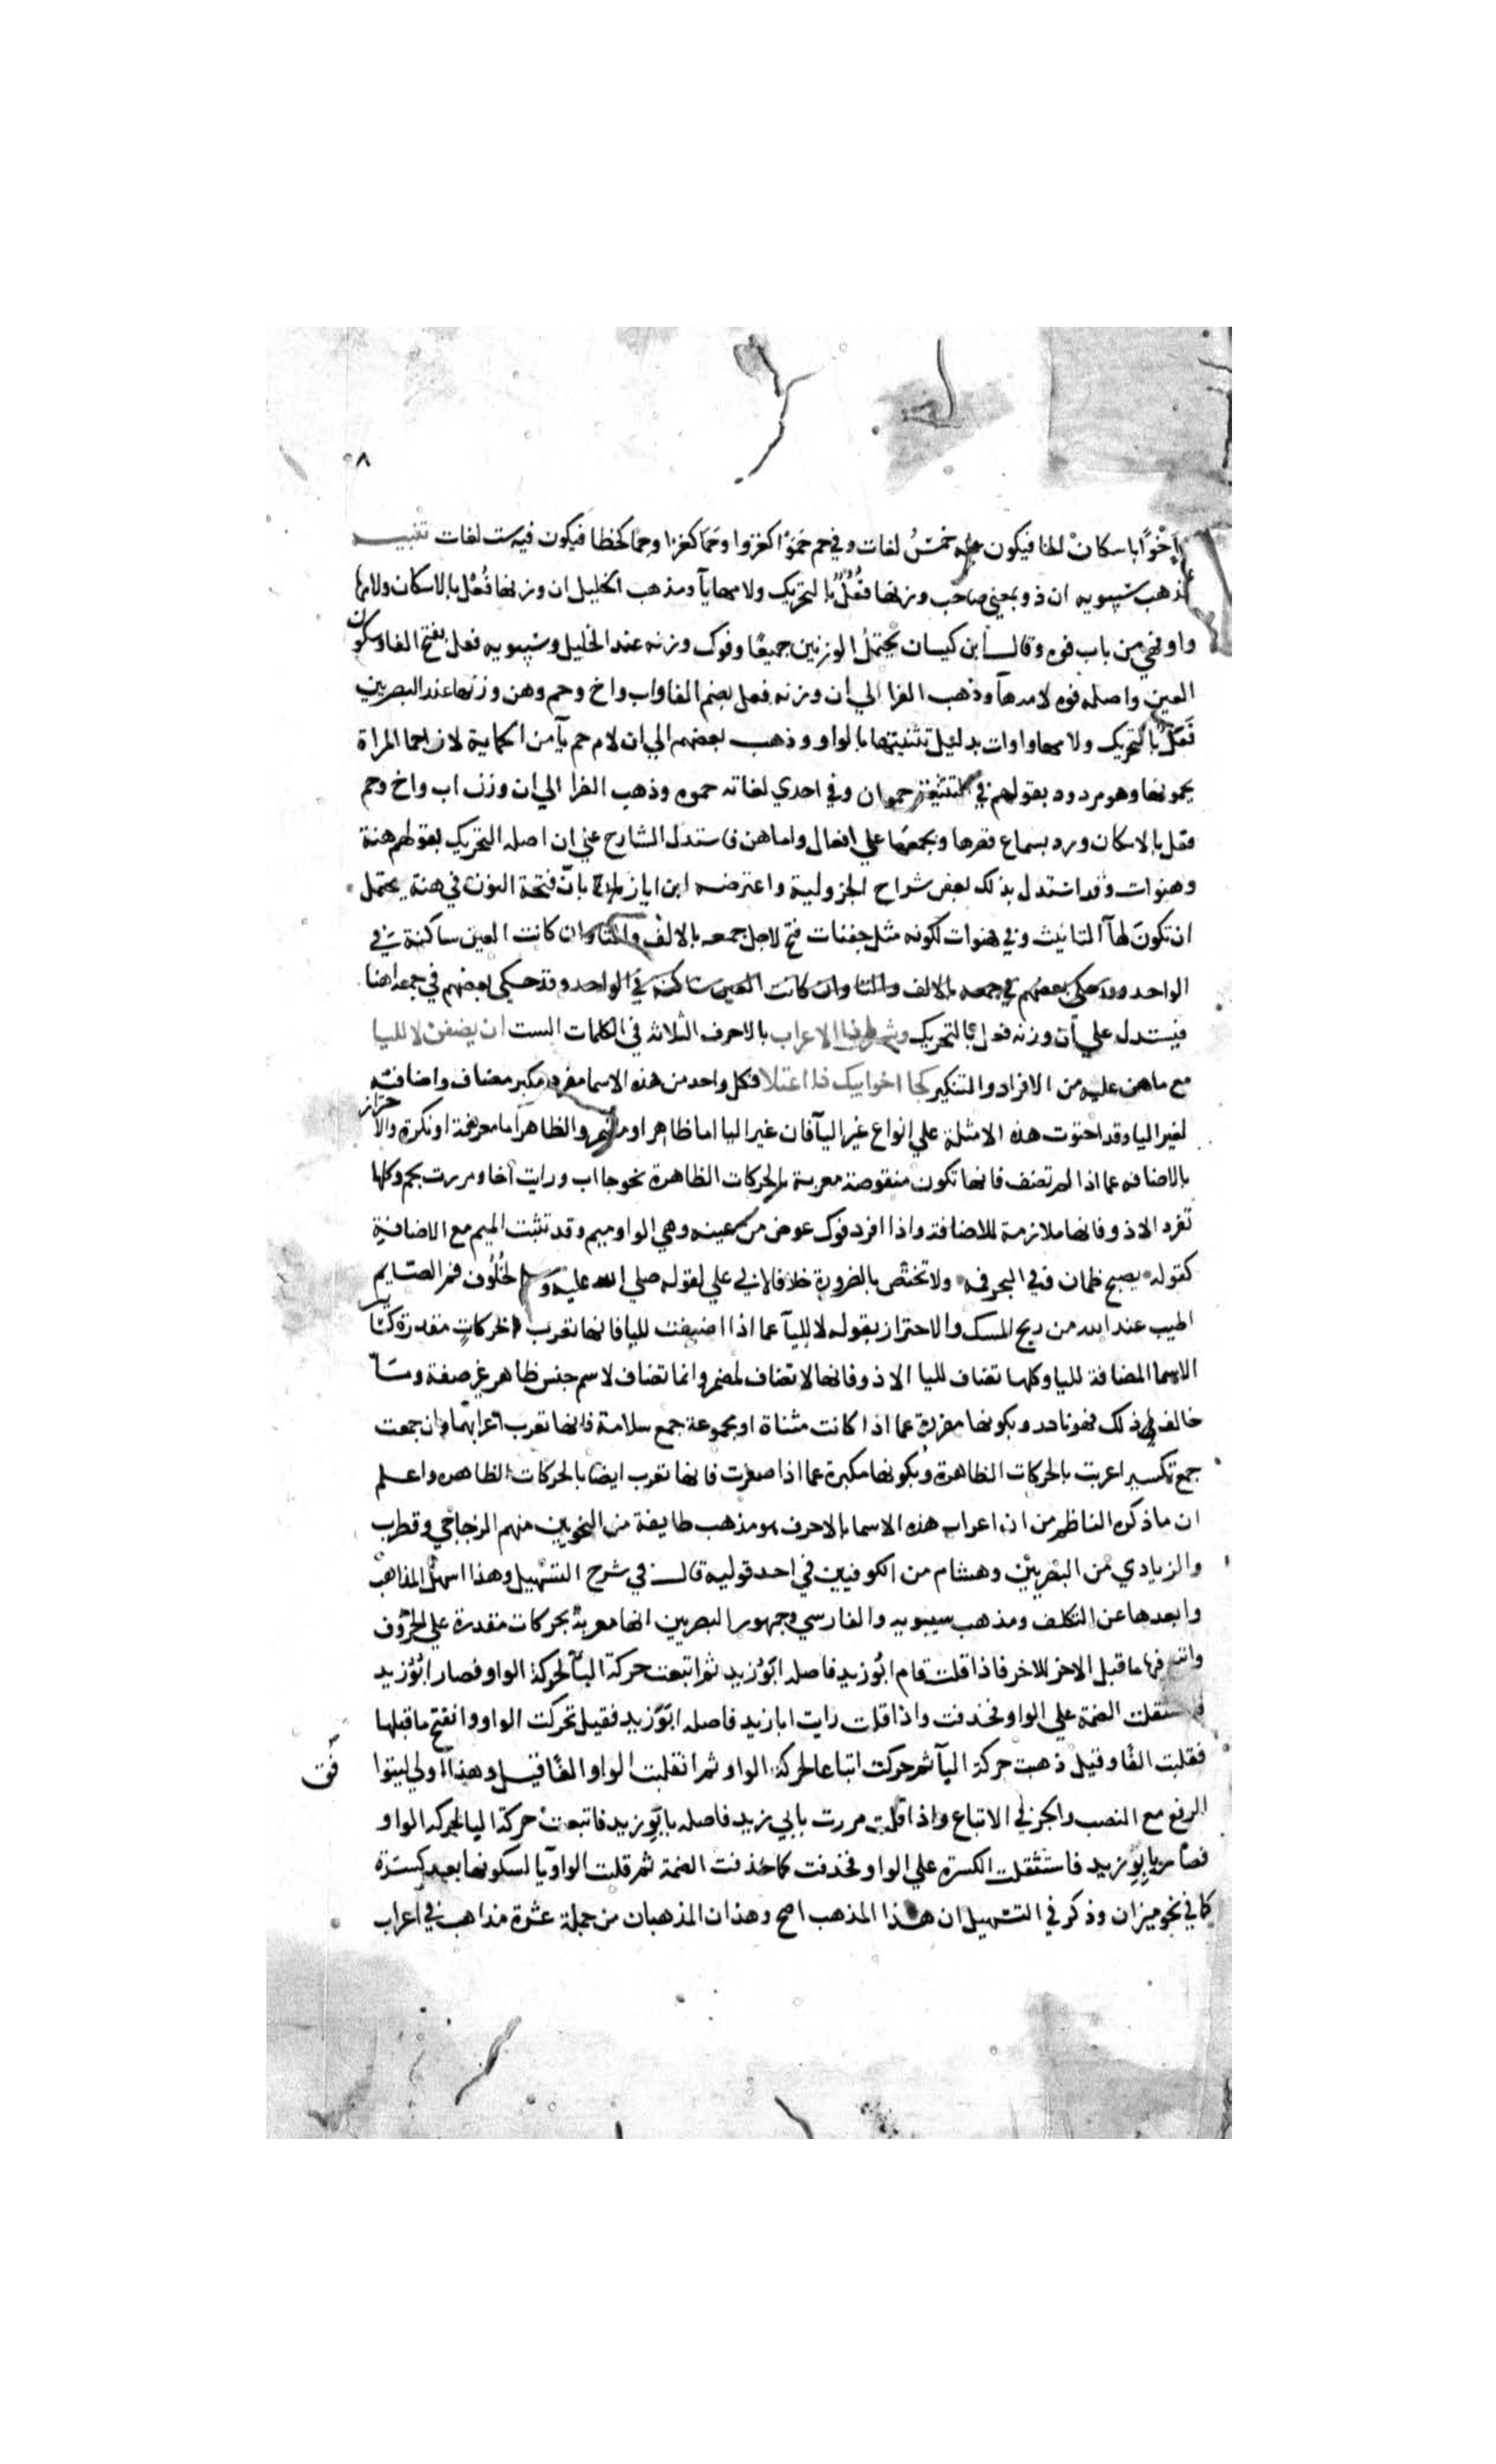 ٥٨
اخوا باسكان الخا فيكون فيه خمس لغات وفي حم حموا كغزوا وحما كغزا وحما كخطا فيكون فيه ست لغات تنبيه
مذهب سيبويه ان ذو بمعني صاحب وزنها فعل بالتحريك ولامها يآ ومذهب الخليل ان وزنها فعل بالاسكان ولامها
واو فهي من باب قوه وقال ابن كيسان يحتمل الوزنين جميعا وفوك وزنه عند الخليل وسيبويه فعل بفتح الفا وسكون
العين واصله فوه لامه هآ وذهب الفرا الي ان وزنه فعل بضم الفا واب واخ وحم وهن وزنها عند البصريين
فعل بالتحريك ولامها واوات بدليل تثنيتها بالواو وذهب بعضهم الي ان لام حم يآ من الحماية لان احما المراة
يحمونها وهو مردود بقولهم في التثنية حموان وفي احدي لغاته حموه وذهب الفرا الي ان وزن اب واخ وحم
فعل بالاسكان ورد بسماع قصرها وبجمعها علي افعال واما هن فاستدل الشارح علي ان اصله التحريك بقولهم هنة
وهنوات وقد استدل بذلك بعض شراح الجزولية واعترضه ابن اياز بان فتحة النون في هنة يحتمل
ان تكون لهآ التانيث وفي هنوات لكونه مثل جفنات فتح لاجل جمعه بالالف والتا وان كانت العين ساكنة في
الواحد وقد حكي بعضهم في جمعه بالالف والتا وان كانت العين ساكنة في الواحد وقد حكي بعضهم في جمعه اهنا
فيستدل علي ان وزنه فعل بالتحريك وشرط ذا الاعراب بالاحرف الثلاثه في الكلمات الست ان يضفن لا لليا
مع ماهن عليه من الافراد والتنكير كجا اخو ابيك ذا اعتلا فكل واحد من هذه الاسما مفرد مكبر مضاف واضافته
لغير اليا وقد احتوت هذه الامثلة علي انواع غير اليآ فان غير اليا اما ظاهر او مضمر والظاهر اما معرفة او نكرة والاحتراز
بالاضافه عما اذا لم تضف فانها تكون منقوصة معربة بالحركات الظاهرة نحو جا اب ورايت اخا ومررت بحم وكلها
تفرد الا ذو فانها ملازمة للاضافة واذا افرد فوك عوض من عينه وهي الواو ميم وقد تثبت الميم مع الاضافة
كقوله يصبح ظمان وفي البحر فمه ولا تختص بالضرورة خلافا لابي علي لقوله صلي الله عليه وسلم لخلوف فم الصايم
اطيب عند الله من ريح المسك والاحتراز بقوله لا لليآ عما اذا اضيفت لليا فانها تعرب بحركات مقدرة كساير
الاسما المضافة لليا وكلها تضاف لليا الا ذو فانها لا تضاف لمضمر وانما تضاف لاسم جنس ظاهر غير صفة وما
خالف ذلك فهو نادر وبكونها مفردة عما اذا كانت مثناة او مجموعة جمع سلامة فانها تعرب اعرابهما وان جمعت
جمع تكسير اعربت بالحركات الظاهرة وبكونها مكبرة عما اذا صغرت فانها تعرب ايضا بالحركات الظاهره واعلم
ان ماذكره الناظم من ان اعراب هذه الاسما بالاحرف هو مذهب طايفة من النحويين منهم الزجاجي وقطرب
والزيادي من البصريين وهشام من الكوفيين في احد قوليه قال في شرح التسهيل وهذا اسهل المذاهب
وابعدها عن التكلف ومذهب سيبويه والفارسي وجمهور البصريين انها معربة بحركات مقدرة علي الحروف
واتبع فيها ماقبل الاخر للاخر فاذا قلت قام ابو زيد فاصله ابو زيد ثم اتبعت حركة البآ لحركة الواو فصار ابو زيد
فاستثقلت الضمة علي الواو فحذفت واذا قلت رايت ابا زيد فاصله ابو زيد فقيل تحركت الواو وانفتح ماقبلها
فقلبت الفا وقيل ذهبت حركة البآ ثم حركت اتباعا لحركة الواو ثم انقلبت الواو الفا قيل وهذا اولي ليتوا
فق
الرفع مع النصب والجر في الاتباع واذا قلت مررت بابي زيد فاصله بابو زيد فاتبعت حركة البا لحركه الواو
فصار بابو زيد فاستثقلت الكسرة علي الواو فحذفت كما حذفت الضمة ثم قلبت الواو يآ لسكونها بعد كسرة
كما في نحو ميزان وذكر في التسهيل ان هذا المذهب اصح وهذان المذهبان من جملة عشرة مذاهب في اعراب